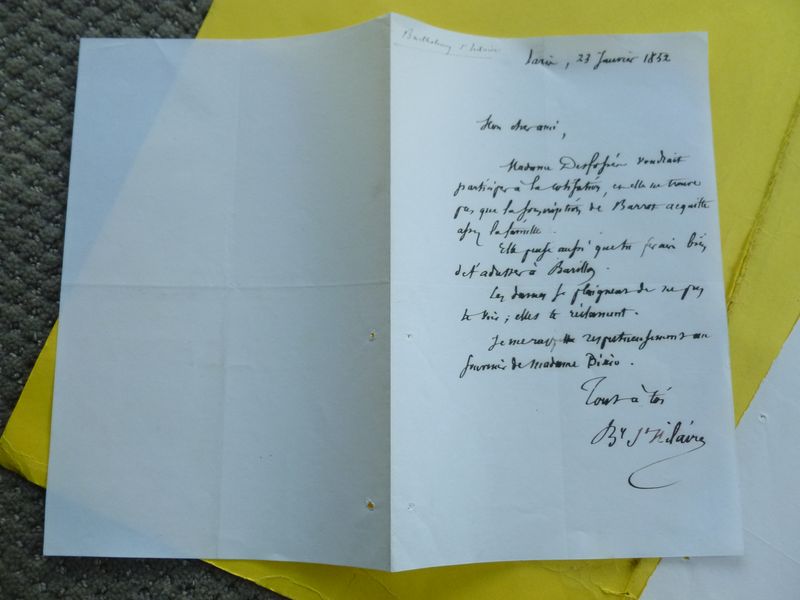 Barthelemy St Hilaire
Paris, 23 Janvier 1852
Mon cher ami,
Madame Desfossés voudrait
participer à la cotisation, et elle ne trouve
pas que la souscription de Barrot acquitte
assez la famille.
Elle pense aussi que tu ferais bien
de t'adresser à Barillon.
Ces dames se plaignent de ne pas
te voir; elles te réclament.
respectueusement au
souvenir de Madame Bixio.
Tout à toi
By St Hilaire